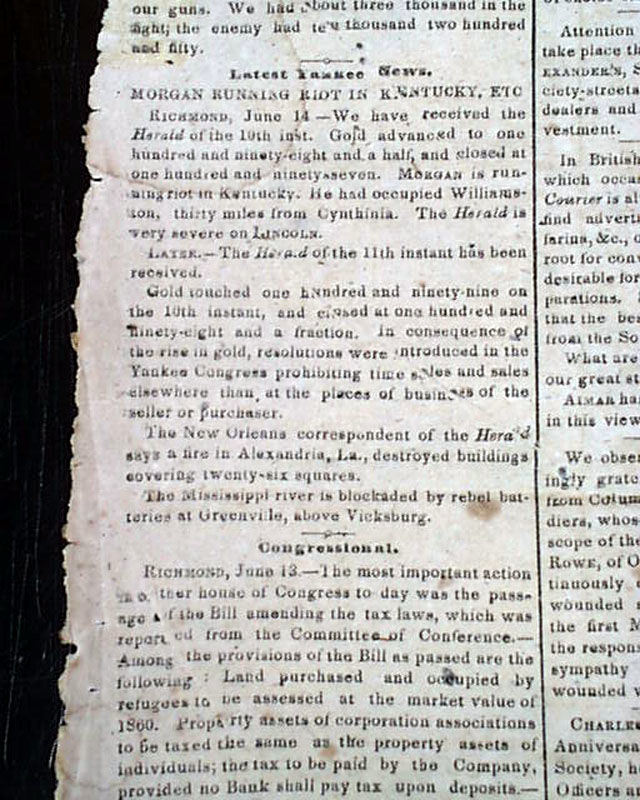 our guns. We had about three thousand in the
fight; the enemy had ten thousand two hundred
and fifty.
Latest Yankee News.
MORGAN RUNNING RIOT IN KENTUCKY, ETC
RICHMOND, June 14—We have received the
Herald of the 10th inst. Gold advanced to one
hundred and ninety-eight and a half, and closed at
one hundred and ninety-seven. MORGAN is run-
ning riot in Kentucky. He had occupied Williams-
ton, thirty miles from Cynthinia. The Herald is
very severe on LINCOLN.
LATER.—The Herald of the 11th instant has been
received.
Gold touched one hundred and ninety-nine on
the 10th instant, and closed at one hundred and
ninety-eight and a fraction. In consequence of
the rise in gold, resolutions were introduced in the
Yankee Congress prohibiting time sales and sales
elsewhere than at the places of business of the
seller or purchaser.
The New Orleans correspondent of the Herald
says a fire in Alexandria, La., destroyed buildings
covering twenty-six squares.
The Mississippi river is blockaded by rebel bat-
teries at Greenville, above Vicksburg.
Congressional.
RICHMOND, June 13.—The most important action
ther house of Congress to day was the pass-
age of the Bill amending the tax laws, which was
reported from the Committee of Conference.—
Among the provisions of the Bill as passed are the
following: Land purchased and occupied by
refugees to be assessed at the market value of
1860. Property assets of corporation associations
to be taxed the same as the property assets of
individuals; the tax to be paid by the Company,
provided no Bank shall pay tax upon deposits.—
Attention
take place th
EXANDER'S, S
ciety-streets
dealers and
vestment.
In British
which occas
Courier is al
find adverti
farina, &c., o
root for conv
desirable for
parations.
that the bes
from the So
What are
our great st
AIMAR ha
in this view
We obser
ingly grate
from Colum
diers, whos
scope of the
ROWE, of O
tinuously
wounded
the first M
the respons
sympathy
wounded
CHARLE
Anniversa
Society, he
Officers a